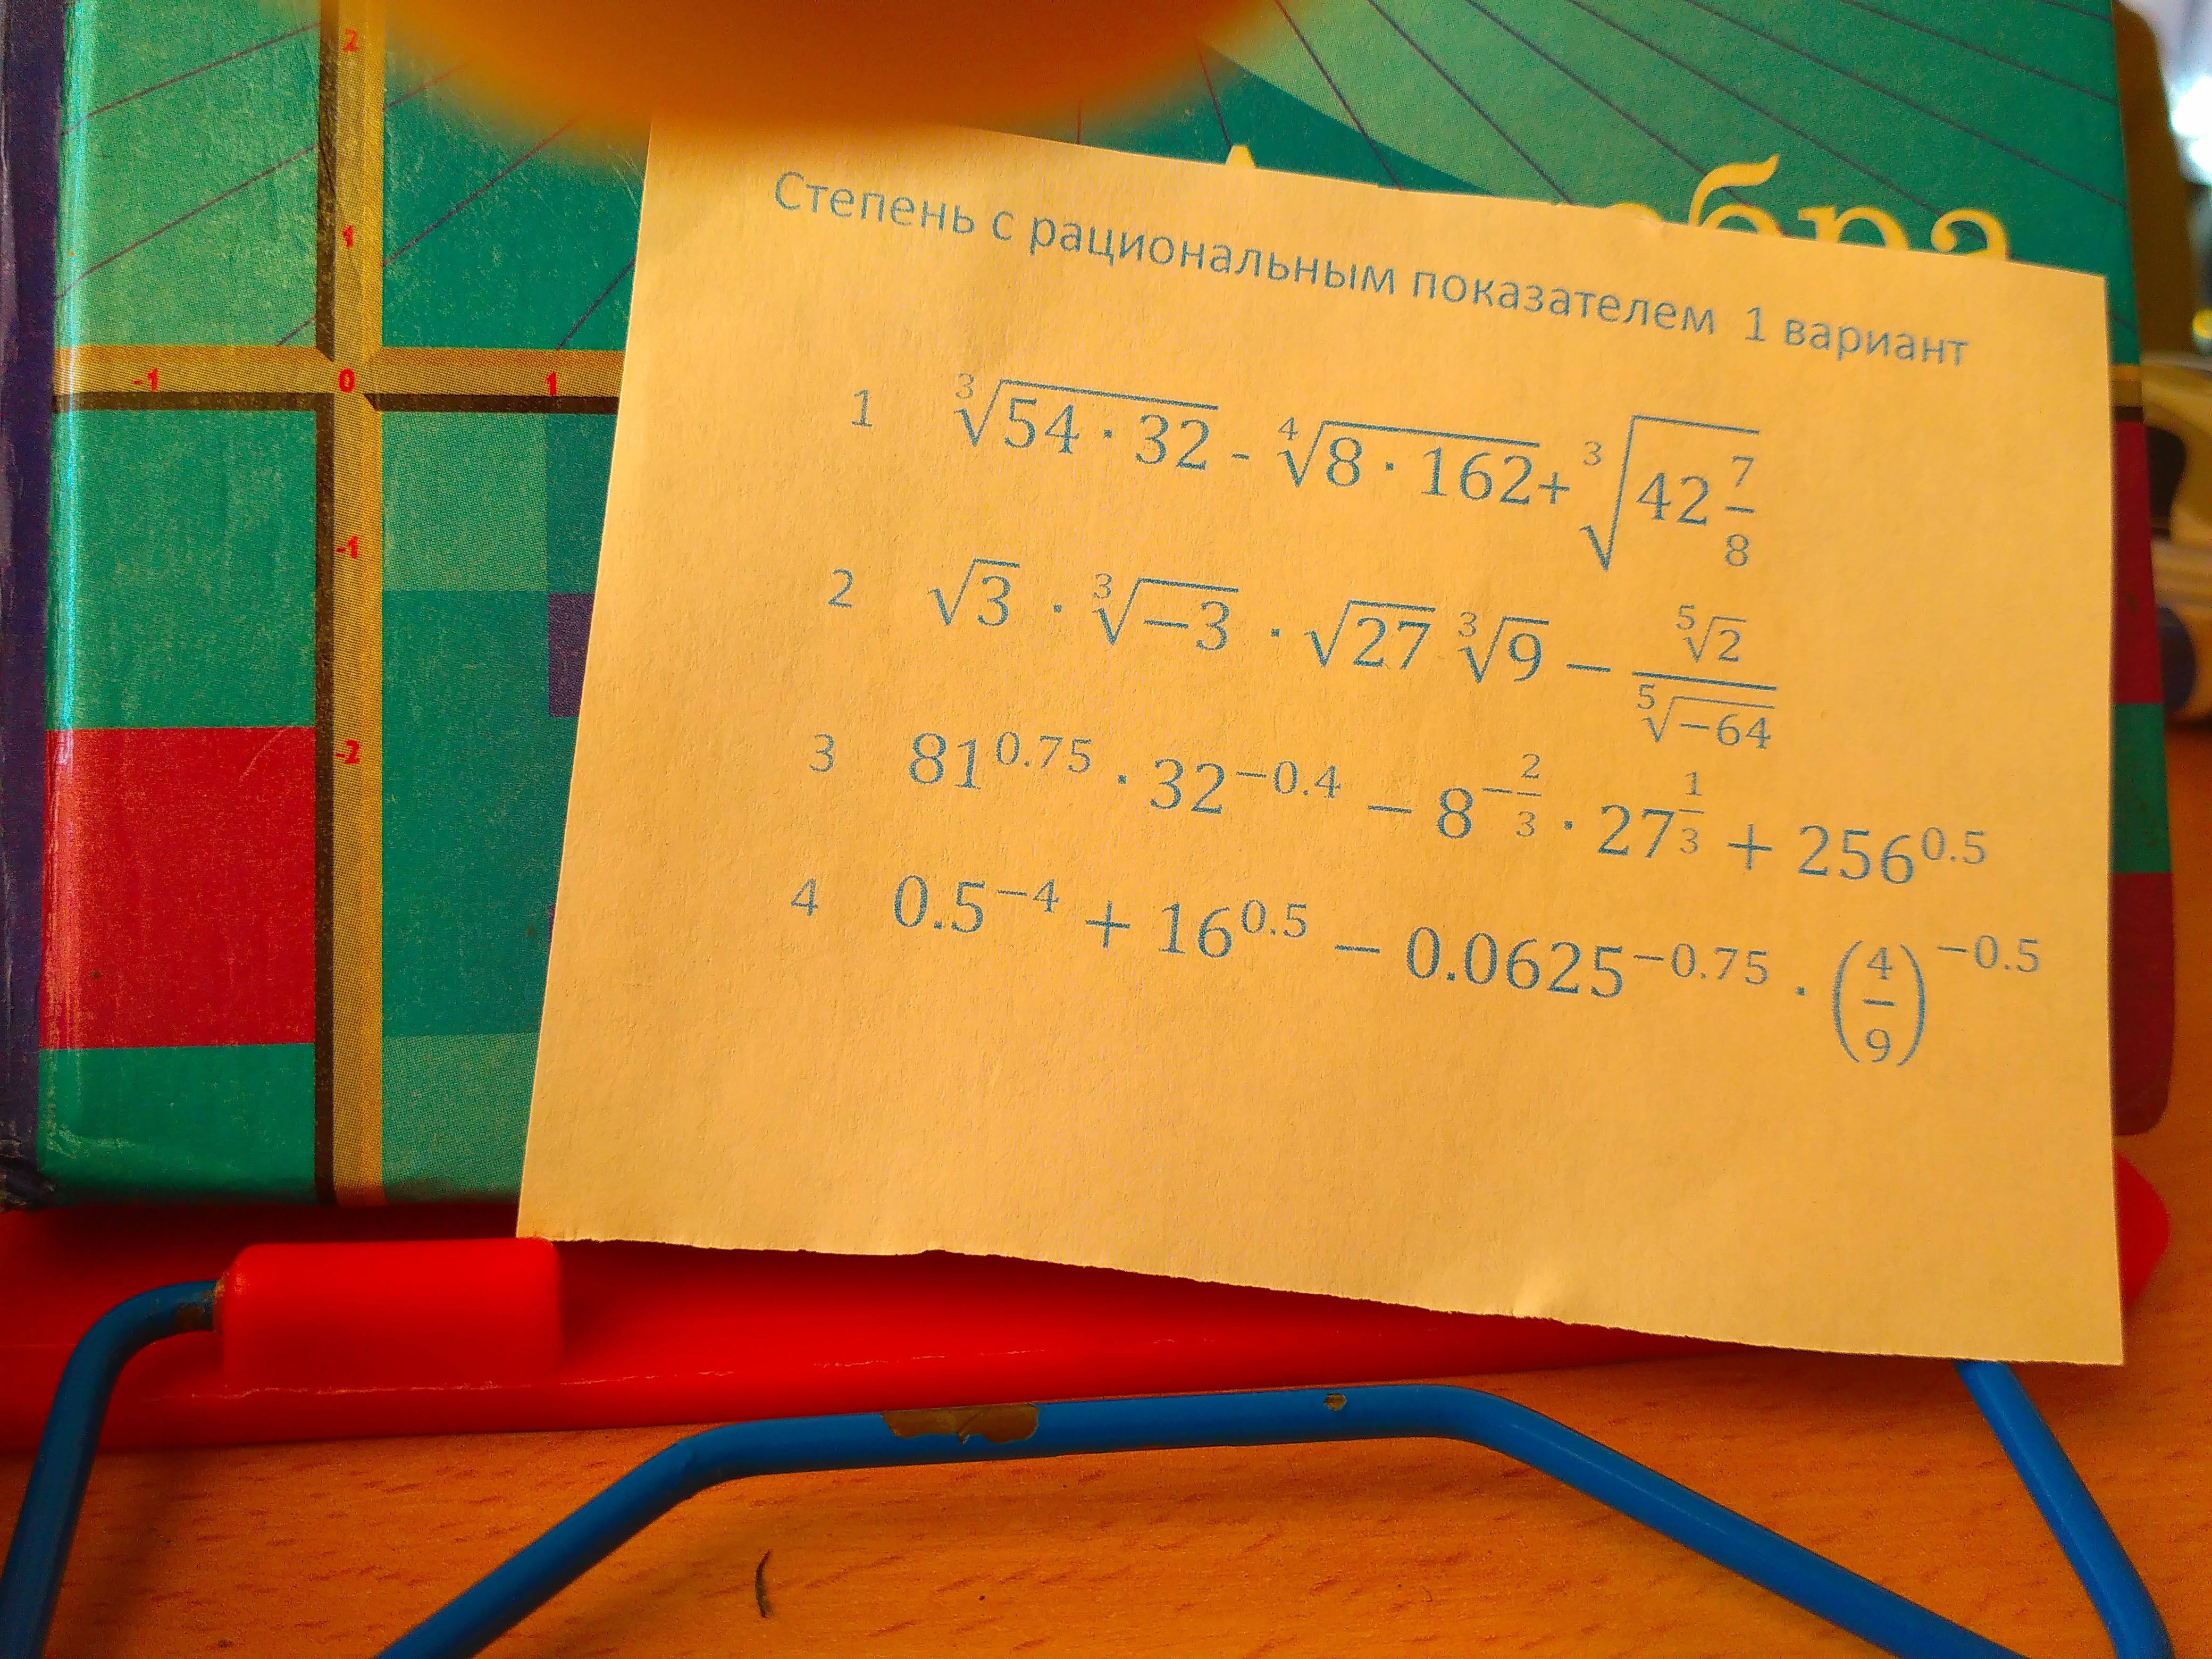 2
1
-1 0 1
-1
-2
бра
Степень с рациональным показателем 1 вариант
1 ∛(54 · 32) - ∜(8 · 162)+ ∛(42 7/8)
2 √3 · ∛(−3) · √27 ∛9 − ⁵√2 / ⁵√(−64)
3 81^0.75 · 32^−0.4 − 8^(−2/3) · 27^(1/3) + 256^0.5
4 0.5^−4 + 16^0.5 − 0.0625^−0.75 · (4/9)^−0.5